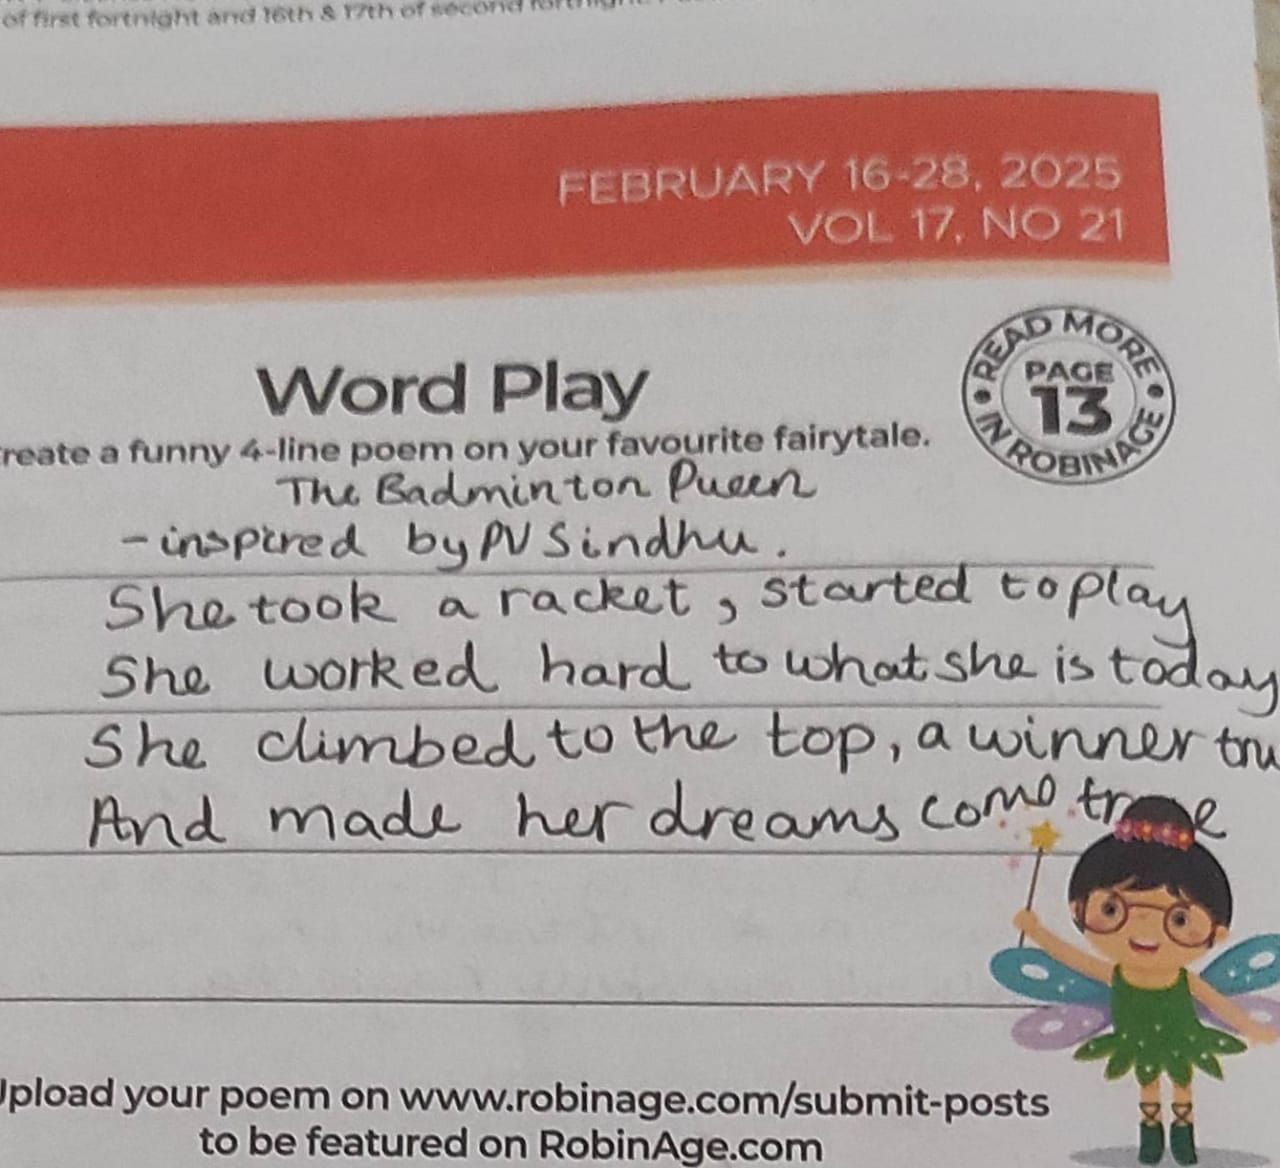 of first fortnight and 16th & 17th of second fortnight.
FEBRUARY 16-28, 2025
VOL 17, NO 21
READ MORE
PAGE
13
IN ROBINAGE
Word Play
reate a funny 4-line poem on your favourite fairytale.
The Badminton Queen
- inspired by PV Sindhu.
She took a racket, started to play
She worked hard to what she is today
She climbed to the top, a winner tru
And made her dreams come true
Upload your poem on www.robinage.com/submit-posts
to be featured on RobinAge.com